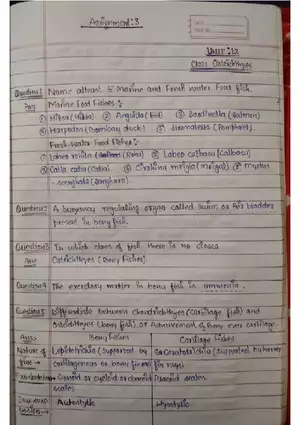 Assignment: 3
UNIT: 12
Class Osteichthyes
Question: Name atleast 5 Marine and Fresh water Food fish.
Ans Marine Food Fishes:-
① Hilsa (Hilsa) ② Anguilla (Eel) ③ Sardinella (Salmon)
④ Harpodon (Bombay duck) ⑤ Stromateus (Pomphret)
Fresh-water Food Fishes:-
① Labeo rohita (Rohu) ② Labeo calbasu (Calbasu)
③ Catla catla (Catla) ④ Cirrhina mrigla (Mrigal) ⑤ Mystus
- senghala (Senghara)
Question: A buoyancy regulating organ called swim or Air bladder
present in bony fish.
Question 3 In which class of fish there is no cloaca
Ans Osteichthyes (Bony Fishes).
Question 4 The excretory matter in bony fish is ammonia.
Question 5 Differentiate between Chondrichthyes (Cartilage fish) and
Osteichthyes (bony fish). or Advancement of Bony over cartilage.
Ans:- Bony Fishes Cartilage Fishes
Nature of Lepidotrichia (Supported by Ceratotrichia (Supported by horny
fins → cartilagenous or bony fin rays) fin rays)
Exoskeleton → Ganoid or cycloid or ctenoid Placoid scales.
scales
Jaw sus- Autostylic Hyostylic.
pension →